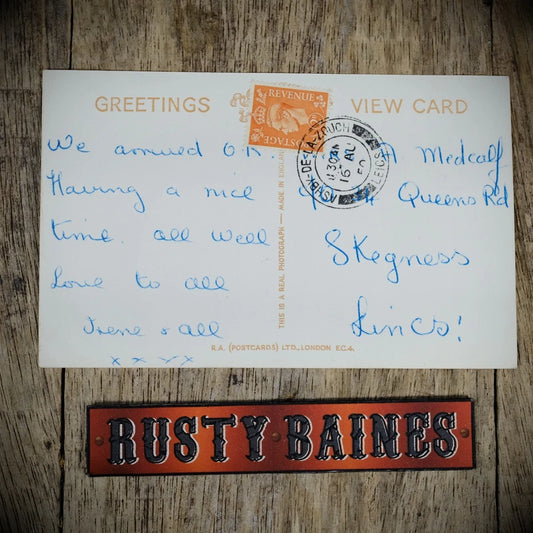 GREETINGS VIEW CARD
REVENUE
POSTAGE
ASHBY-DE-LA-ZOUCH
LEICS
16 AU
50
We arrived O.K.
Having a nice
time. all well
Love to all
Irene & all
x x x x
A Medcalf
Queens Rd
Skegness
Lincs!
THIS IS A REAL PHOTOGRAPH — MADE IN ENGLAND
R.A. (POSTCARDS) LTD., LONDON E.C.4.
RUSTY BAINES